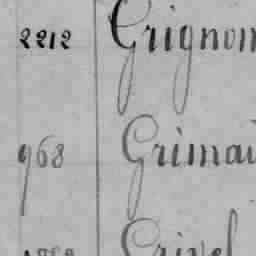 2212 Grignon
968 Grimai
Grivel